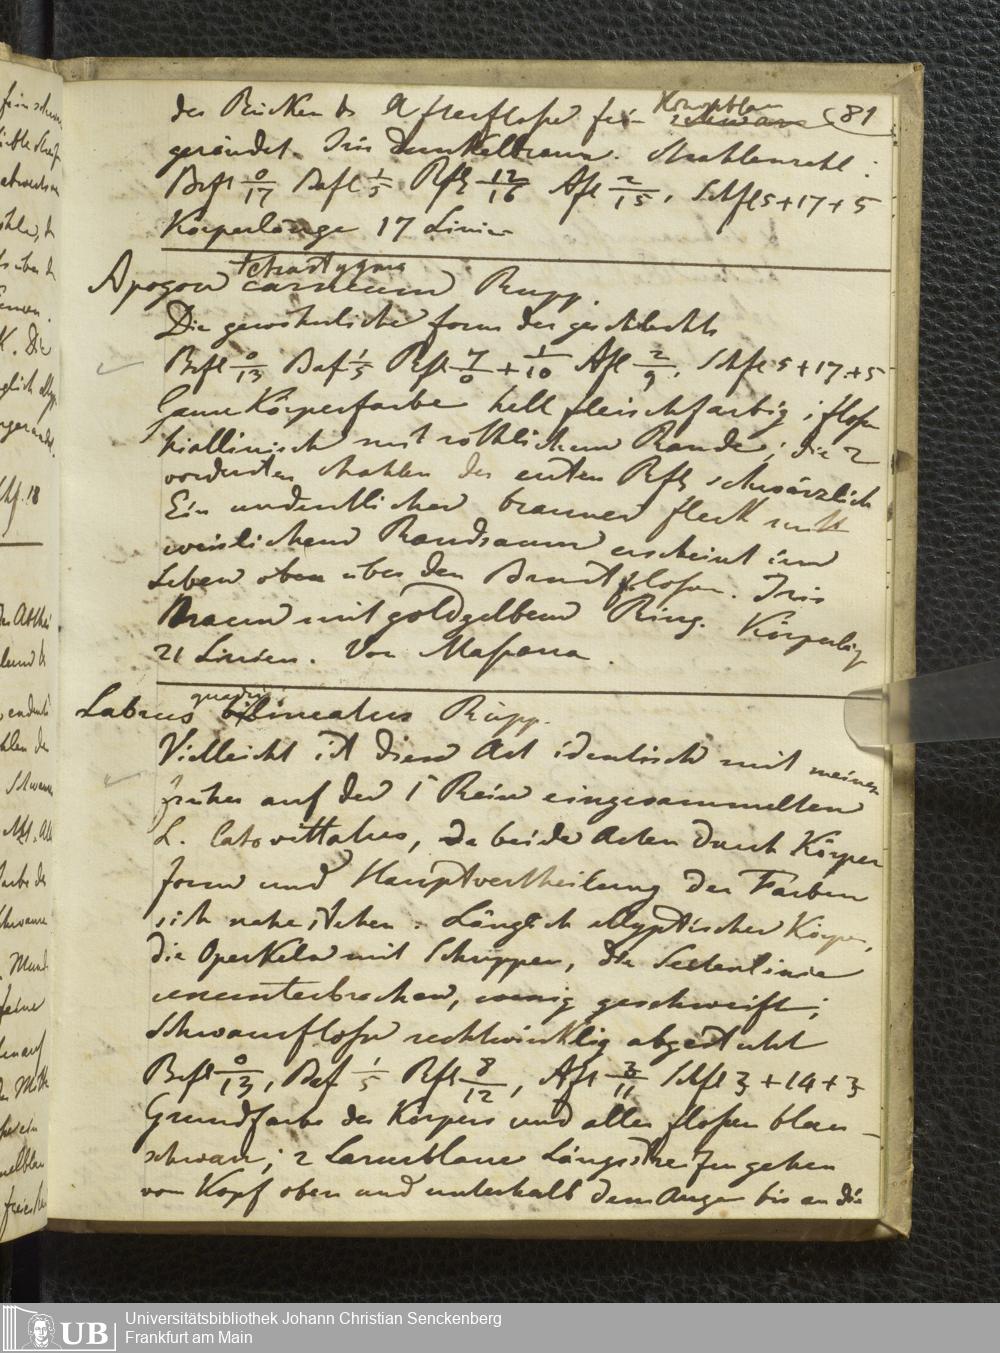 der Rücken & Afterflosse fein Konopblau schwarz (81
gerändet. Iris dunkelbraun. Strahlenzahl:
Brfl 0/17 Bafl 1/5 Rfl 12/16 Afl 2/15, Schfl 5+17+5
Körperlänge 17 Linien
Apogon tetrastygma carneum Rupp.
Die gewöhnliche form des geschlechts
Brfl 0/13 Baf 1/5 Rfl 7/0 + 1/10 Afl 2/9, Schfl 5+17+5
Ganze Körperfarbe hell fleischfarbig; flossen
hiallinisch mit röthlichem Rande; die 2
vordersten strahlen der ersten Rfl schwärzlich
Ein undeutlicher brauner fleck mit
weislichem Randsaum erscheint im
Leben oben über den Brustflossen. Iris
Braun mit goldgelbem Ring. Körperlg
21 Linien. Von Massaua.
Labrus quadri bilineatus Rüpp.
Vielleicht ist diese Art identisch mit meinem
früher auf der 1 Reise eingesammelten
L. latovittatus, da beide Arten durch Körper
form und Hauptvertheilung der Farben
sich nahe stehen: Länglich elyptischer Körper,
die Operkeln mit Schuppen, die Seitenlinie
ununterbrochen, wenig geschweift;
Schwanzflosse rechtwinklig abgestutzt
Brfl 0/13, Baf 1/5 Rfl 8/12, Afl 3/11 Schfl 3+14+3
Grundfarbe des Körpers und aller flossen blau-
schwarz; 2 Lazurblaue Längsstreifen gehen
vom Kopf oben und unterhalb dem Auge bis an die
UB
Universitätsbibliothek Johann Christian Senckenberg
Frankfurt am Main